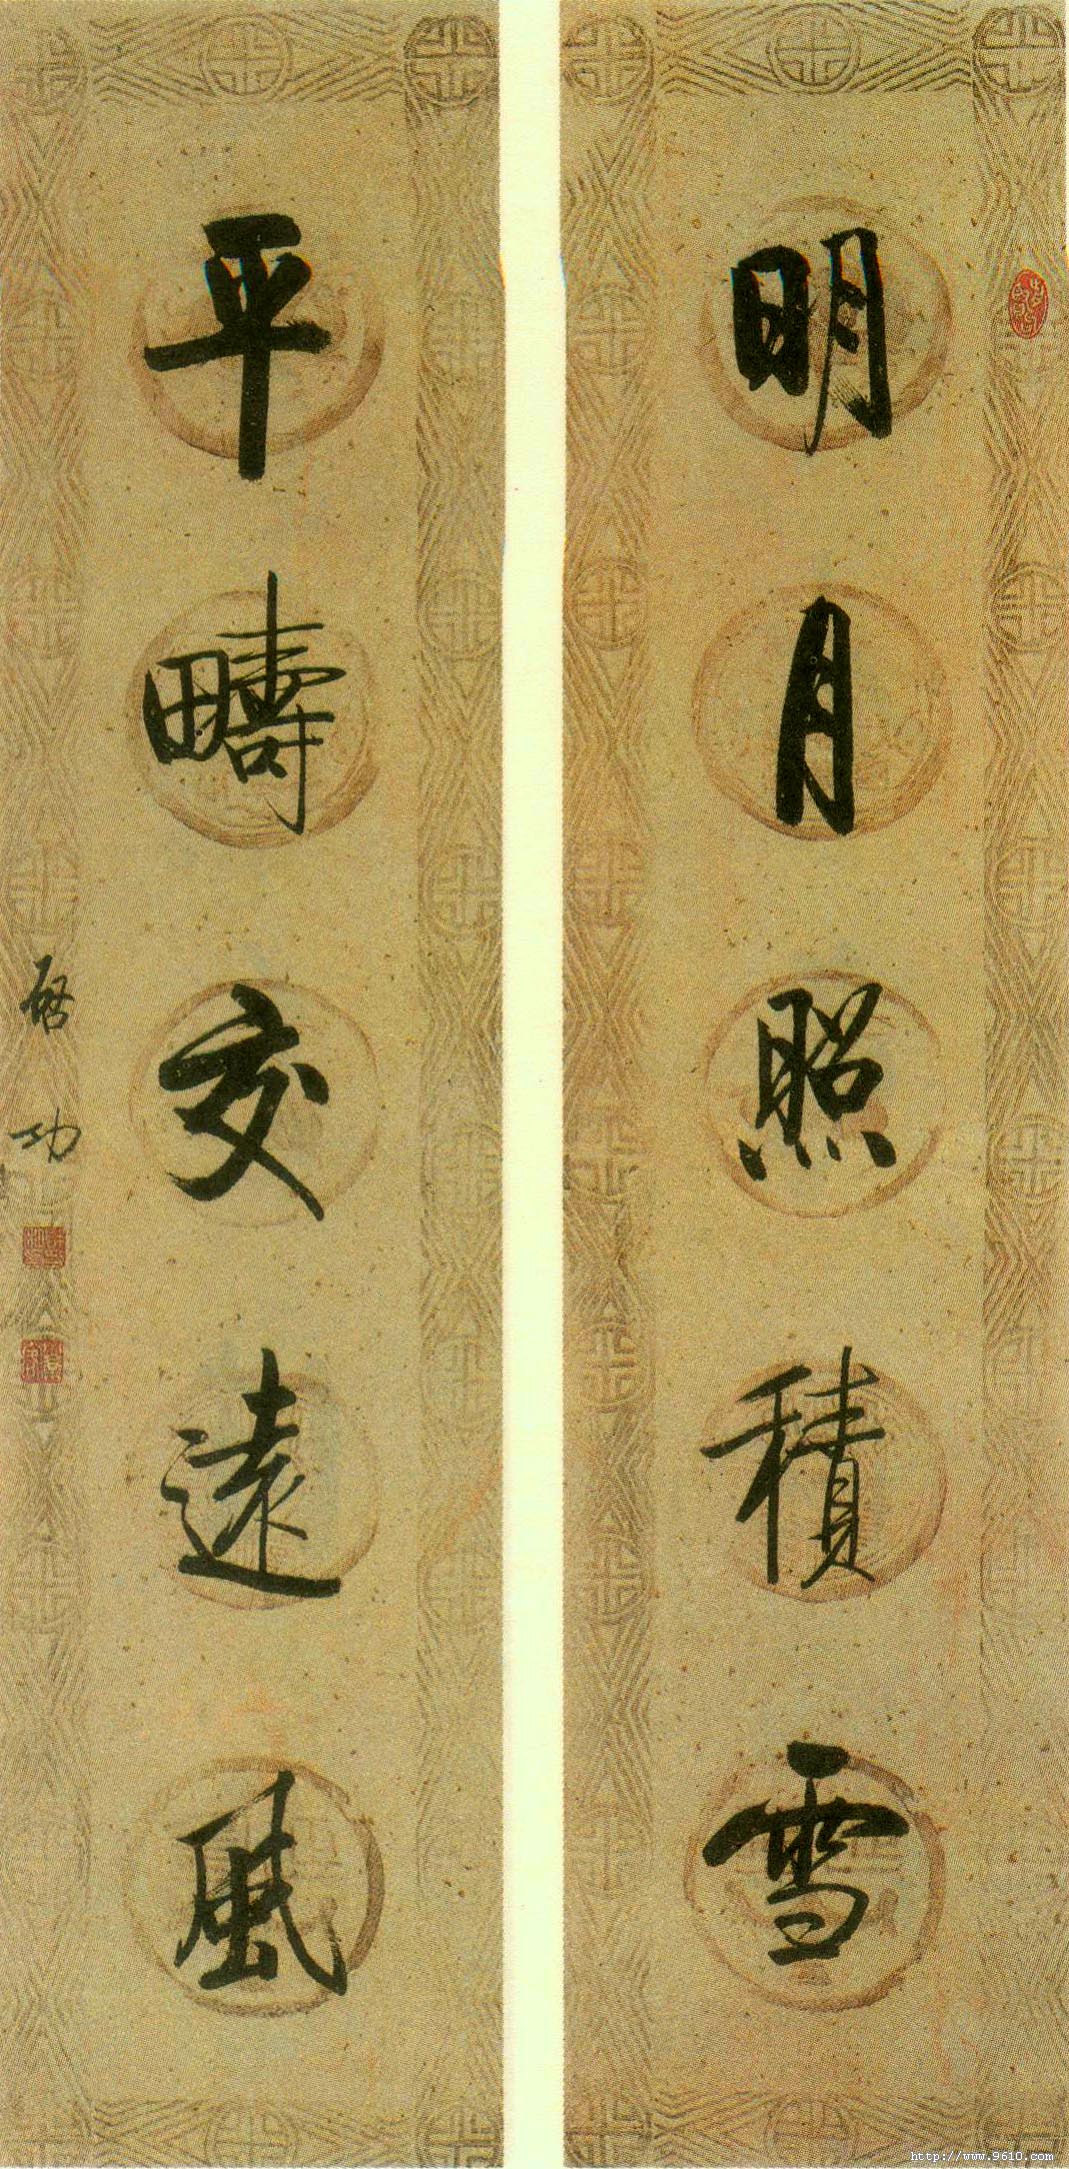 明月照積雪
平疇交遠風
啓功
http://www.9610.com